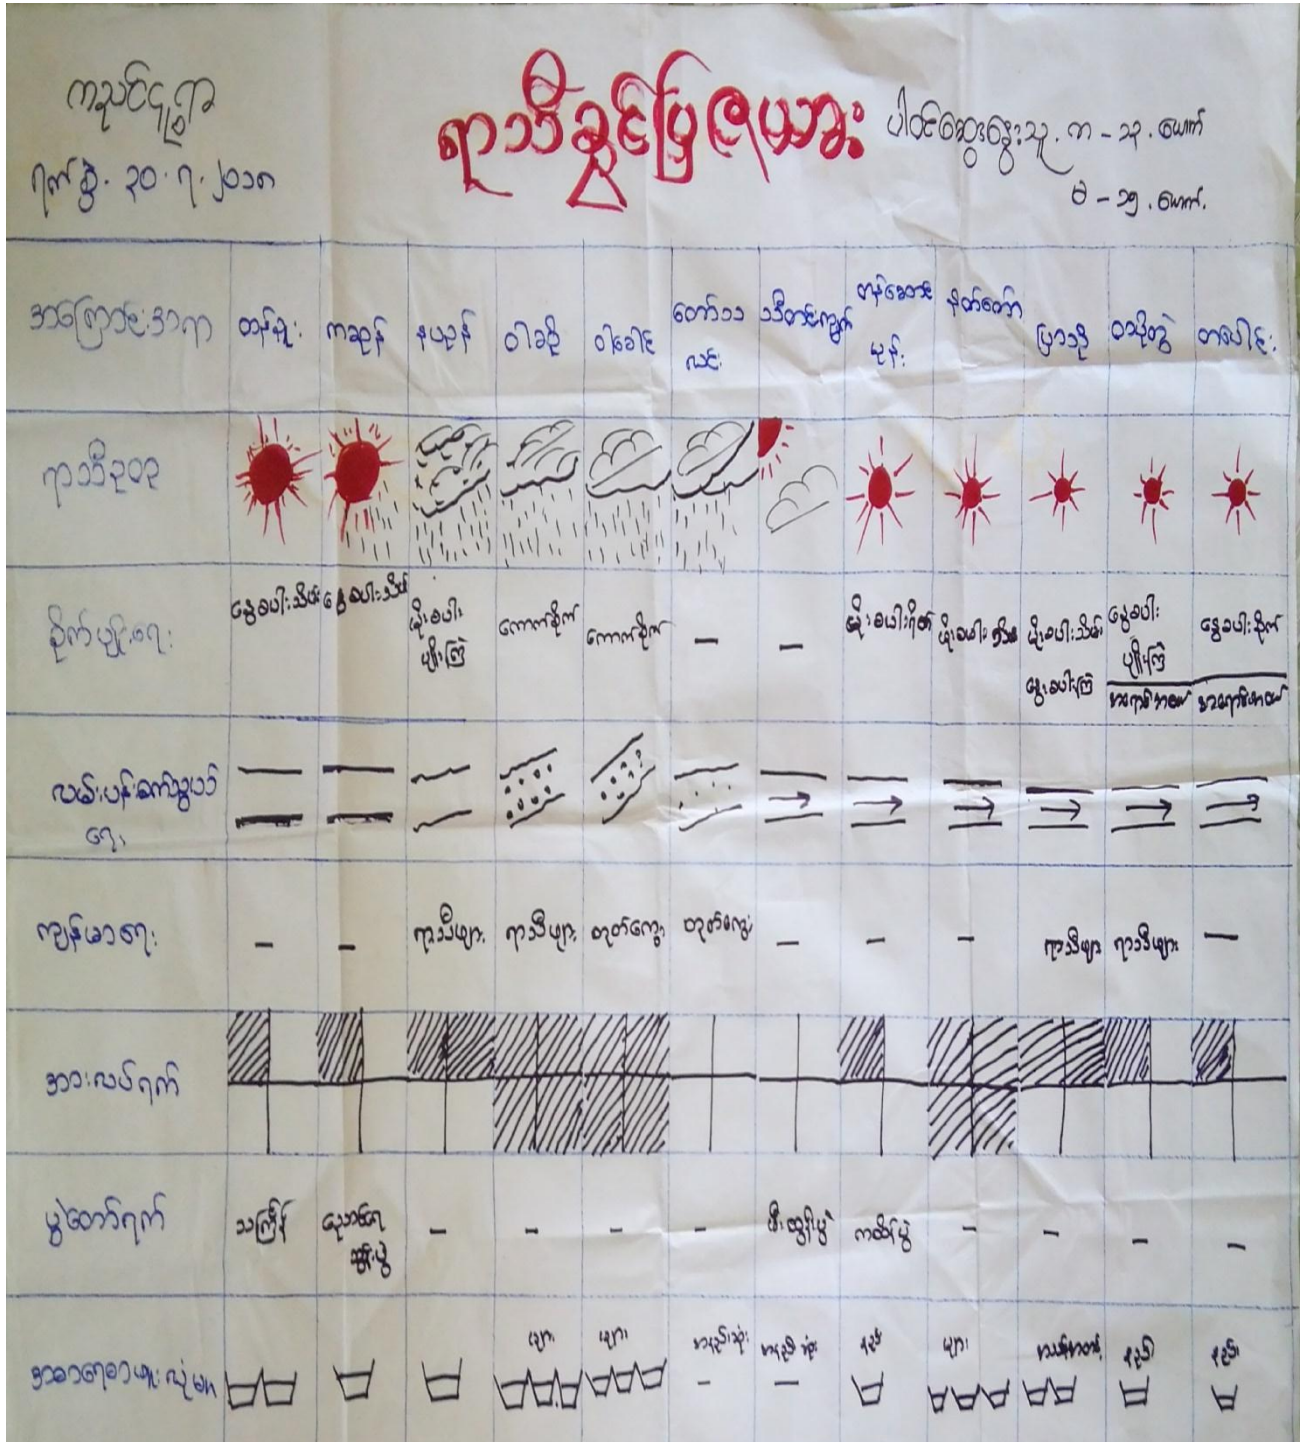 ရာသီခွင်ပြဇယား
ရက်စွဲ. ၃၀.၇.၂၀၁၈
ပါဝင်ဆွေးနွေးသူ. က - ၁၃. ယောက်
မ - ၁၅. ယောက်.
အကြောင်းအရာ တန်ခူး ကဆုန် နယုန် ဝါဆို ဝါခေါင် တော်သလင်း သီတင်းကျွတ် တန်ဆောင်မုန်း နတ်တော် ပြာသို တပို့တွဲ တပေါင်း
ရာသီဥတု
စိုက်ပျိုးရေး နွေစပါးသိမ်း နွေစပါးသိမ်း မိုးစပါးပျိုးကြဲ ကောက်စိုက် ကောက်စိုက် - - မိုးစပါးရိတ် မိုးစပါးသိမ်း မိုးစပါးသိမ်း နွေစပါးကြဲ နွေစပါးပျိုးကြဲ နွေစပါးစိုက်
လမ်းပန်းဆက်သွယ်ရေး
ကျန်းမာရေး - - ရာသီဖျား ရာသီဖျား တုတ်ကွေး တုတ်ကွေး - - - ရာသီဖျား ရာသီဖျား -
အားလပ်ရက်
ပွဲတော်ရက် သင်္ကြန် ညောင်ရေသွန်းပွဲ - - - - မီးထွန်းပွဲ ကထိန်ပွဲ - - - -
များ များ အနည်းဆုံး အနည်းဆုံး နည်း များ အသင့်အတင့် နည်း နည်း